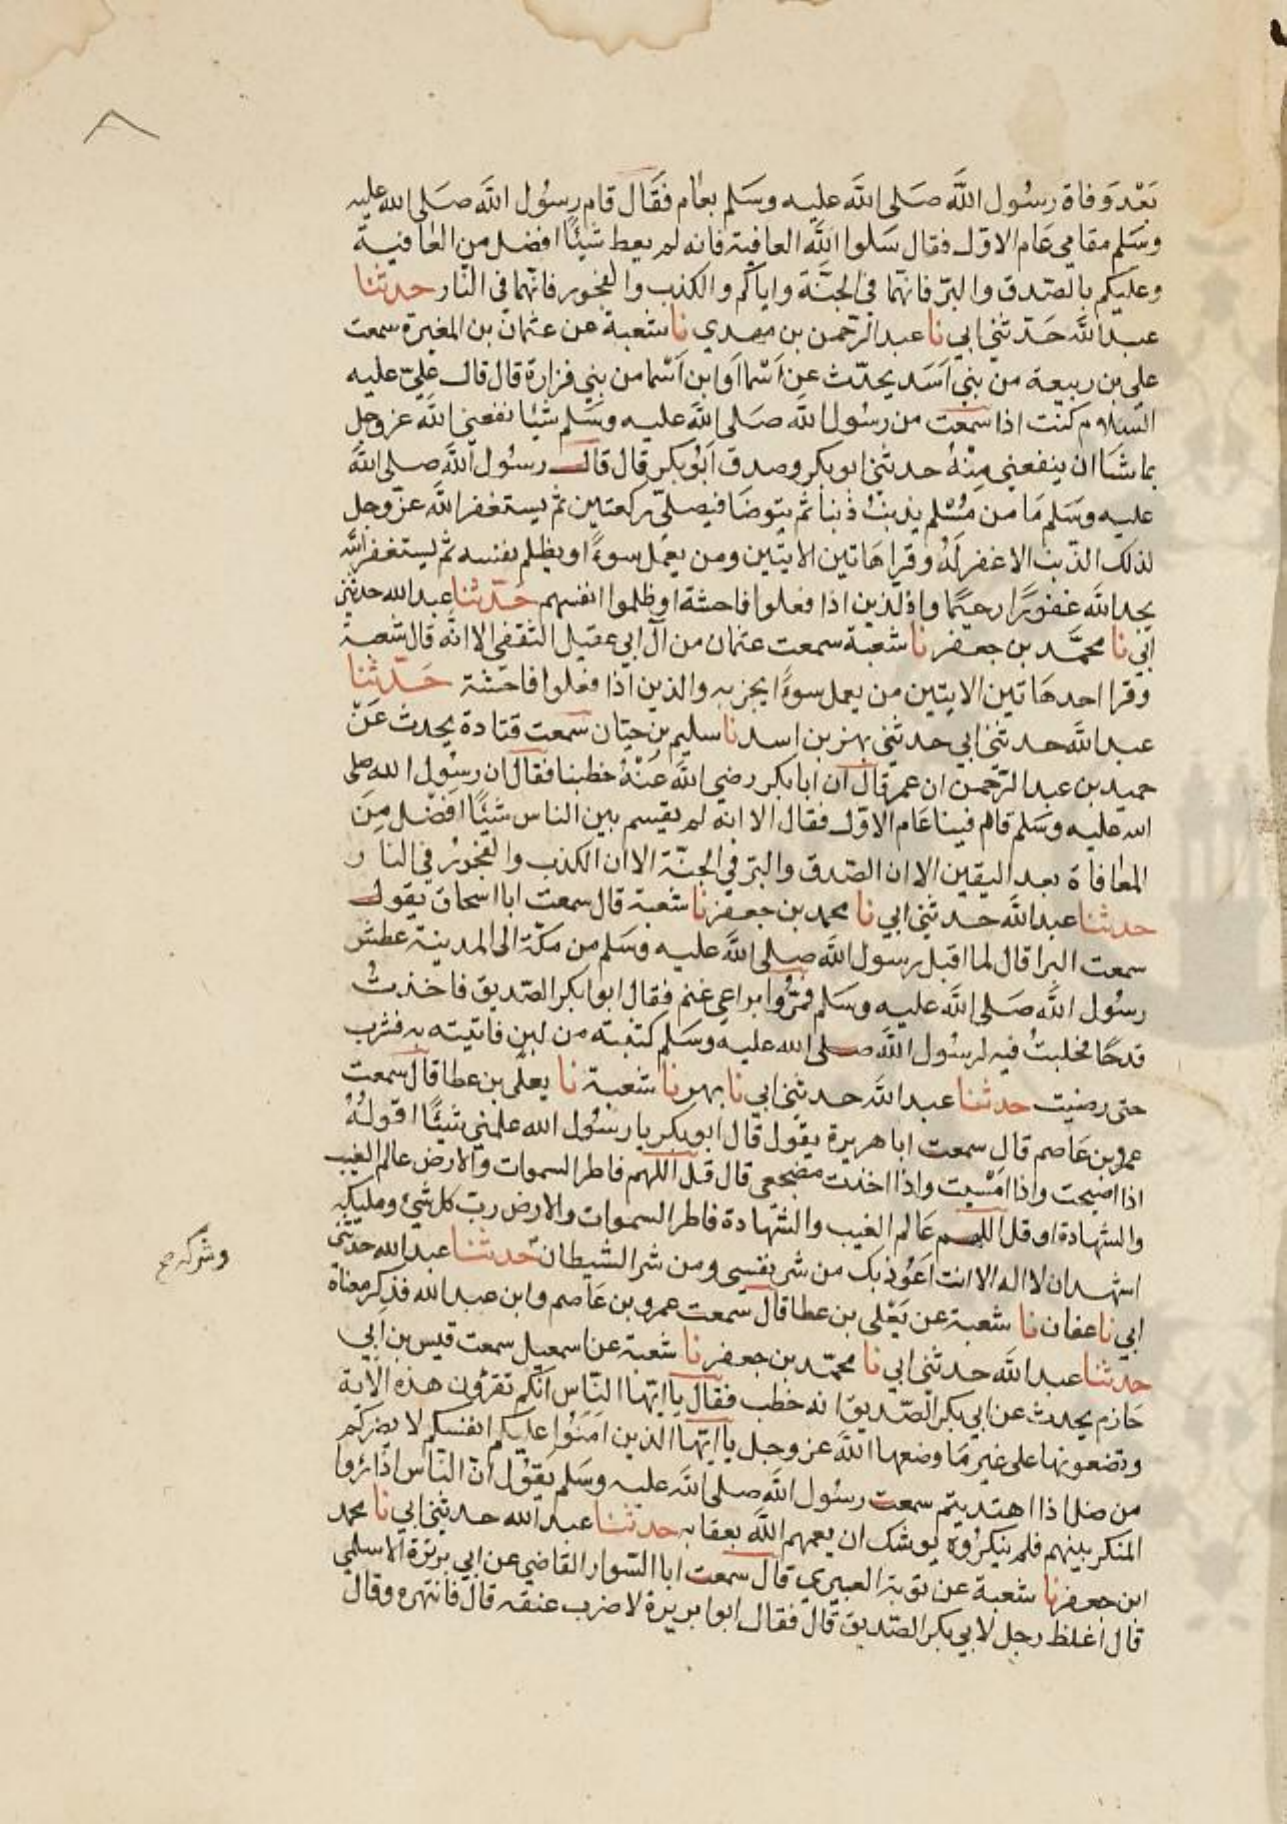 بَعْدَ وَفاة رسُول اللَّه صَلى اللَّه عليه وسَلم بعام فقَال قام رسُول اللَّه صَلى الله عليه
وسَلم مقامي عَام الاوّل فقال سَلوا اللَّه العافية فانه لم يعط شيئًا افضل من العافية
وعليكم بالصّدق والبرّ فانهّما في الجنَّة واياكم والكذب والفجور فانّهما في النّار حدثنا
عبد اللَّه حَدّثني ابي نا عبد الرّحمن بن مهدي نا شعبة عن عثمان بن المغيرة سمعت
علي بن ربيعة من بني اَسَد يحدّث عن اَسْما اَو ابن اَسْما من بني فزارة قال قال عليّ عليه
السّلام كنت اذا سمعت من رسُول اللَّه صَلى اللَّه عليه وسَلم شيئا نفعني اللَّه عز وجل
بما شَا ان ينفعني مِنْهُ حدثني ابو بكر وصدق اَبُو بكر قال قال رسُول اللَّه صلى اللَّه
عليه وسَلم مَا من مُسْلم يذنبُ ذنبا ثم يتوضَا فيصليّ ركعتين ثم يستغفر اللَّه عزّ وجل
لذلك الذّنب الا غفر لَهُ وقرا هَاتين الايتين ومن يعمل سوءًا او يظلم نفسه ثم يستغفر اللَّه
يجد اللَّه غفورًا رحيمًا والذين اذا فعلوا فاحشة او ظلموا انفسهم حَدّثنا عبد الله حدثني
ابي نا محمَّد بن جعفر نا شعبة سمعت عثمان من آل ابي عقيل الثقفي الا انه قال شعبة
وقرا احد هَاتين الايتين من يعمل سوءًا يجز به والذين اذا فعلوا فاحشة حَدّثنا
عبد اللَّه حدثني ابي حدثني بهز بن اسد نا سليم بن حيّان سمعت قتادة يحدث عَنْ
حميد بن عبد الرّحمن ان عمر قال ان ابا بكر رضي اللَّه عَنْهُ خطبنا فقال ان رسُول الله صلى
الله عليه وسَلم قام فينا عَام الاوّل فقال الا انه لم يقسم بين الناس شيئًا افضل مِنَ
المعافاة بعد اليقين الا ان الصّدق والبرّ في الجنّة الا ان الكذب والفجورُ في النار
حدثنا عبد اللَّه حدثني ابي نا محمد بن جعفر نا شعبة قال سمعت ابا اسحاق يقول
سمعت البرا قال لما اقبل رسول اللَّه صلى اللَّه عليه وسَلم من مكّة الى المدينة عطش
رسُول اللَّه صَلى اللَّه عليه وسَلم فمرُّوا براعي غنم فقال ابوا بكر الصّديق فاخذتُ
قدحًا فحلبتُ فيه لرسُول اللَّه صلى الله عليه وسَلم كثبة من لبن فاتيته به فشرب
حتى رضيت حدثنا عبد اللَّه حدثني ابي نا بهز نا شعبة نا يعلى بن عطا قال سمعت
عمرو بن عَاصم قال سمعت ابا هريرة يقول قال ابو بكر يا رسُول الله علمني شيئًا اقولهُ
اذا اصبحت واذا امسَيت واذا اخذت مضجعي قال قل اللهم فاطر السموات والارض عالم الغيب
والشهادة او قل اللهم عَالم الغيب والشّهادة فاطر السموات والارض ربّ كل شيْ ومليكه
اشهد ان لا اله الا انت اَعُوذ بك من شر نفسي ومن شر الشيطان حدثنا عبد الله حدّثني
وشركه صح
ابي نا عفان نا شعبة عن يَعْلى بن عطا قال سمعت عمرو بن عَاصم وابن عبد الله فذكر معناه
حدثنا عبد اللَّه حدثني ابي نا محمّد بن جعفر نا شعبة عن اسمعيل سمعت قيس بن ابي
حَازم يحدث عن ابي بكر الصّديق انه خطب فقال يا ايّها النّاس انّكم تقرؤون هذه الآية
وتضعونها على غير مَا وضعها اللَّه عز وجل يا ايّها الذين امَنُوا عليكم انفسكم لا يضركم
من ضل اذا اهتديتم سمعت رسُول اللَّه صلى اللَّه عليه وسَلم يَقوُل انّ النّاس اذا رؤوا
المنكر بينهم فلم ينكرُوه يوشك ان يعمهم اللَّه بعقابه حدثنا عبد الله حدثني ابي نا محمد
ابن جعفر نا شعبة عن توبة العنبري قال سمعت ابا السّوار القاضي عن ابي برزة الاسلمي
قال اغلظ رجل لابي بكر الصّديق قال فقال ابوا برزة لاضرب عنقه قال فانتهره وقال